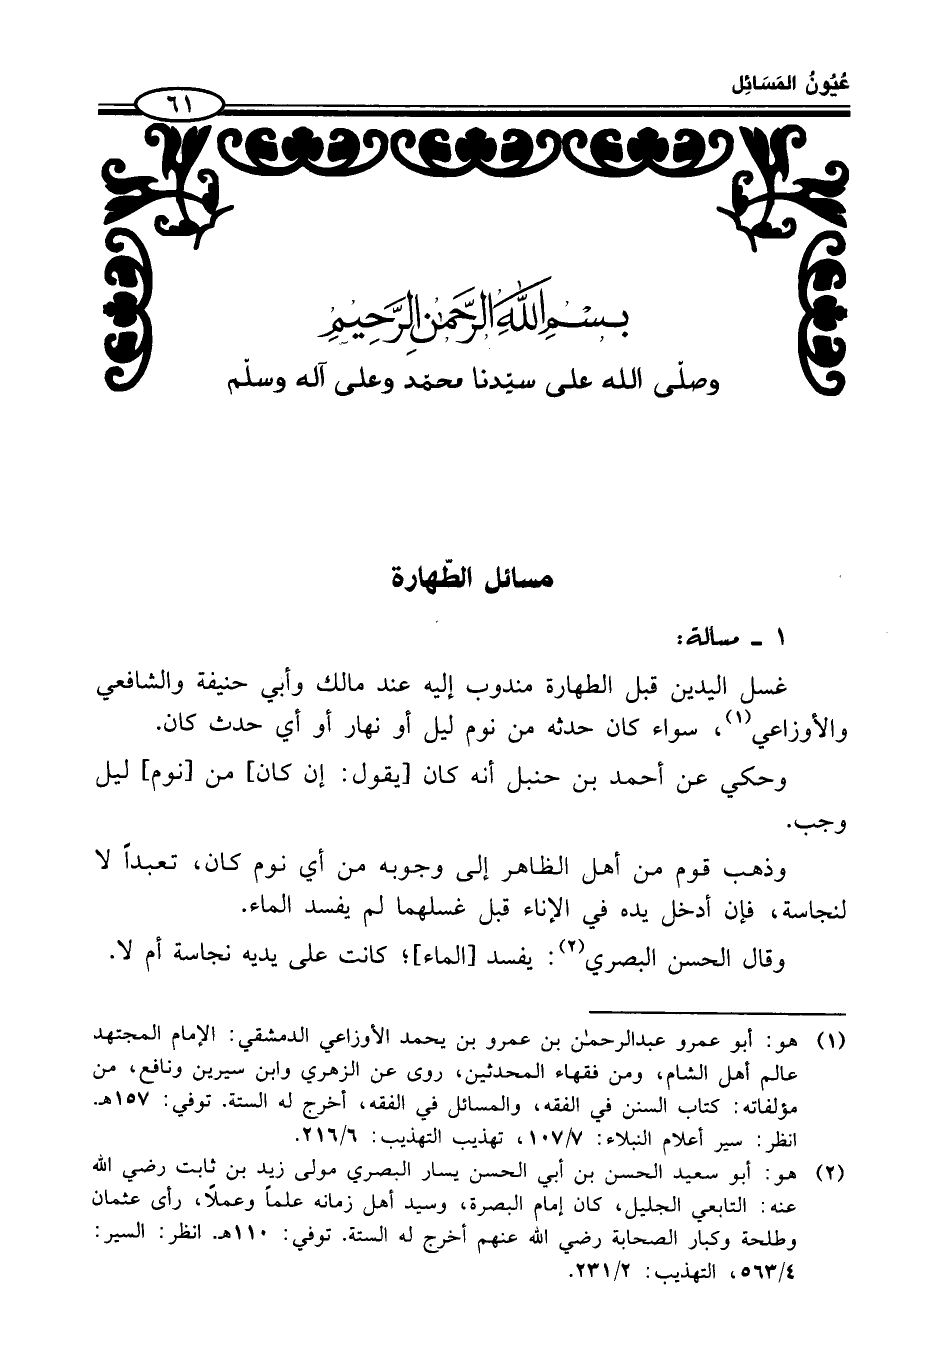 عُيُونُ المَسَائِل
٦١
بِسْمِ اللَّهِ الرَّحْمَٰنِ الرَّحِيمِ
وصلّى الله على سيّدنا محمّد وعلى آله وسلّم
مسائل الطّهارة
١ - مسألة:
غسل اليدين قبل الطهارة مندوب إليه عند مالك وأبي حنيفة والشافعي
والأوزاعي(١)، سواء كان حدثه من نوم ليل أو نهار أو أي حدث كان.
وحكي عن أحمد بن حنبل أنه كان [يقول: إن كان] من [نوم] ليل
وجب.
وذهب قوم من أهل الظاهر إلى وجوبه من أي نوم كان، تعبداً لا
لنجاسة، فإن أدخل يده في الإناء قبل غسلهما لم يفسد الماء.
وقال الحسن البصري(٢): يفسد [الماء]؛ كانت على يديه نجاسة أم لا.
(١) هو: أبو عمرو عبدالرحمٰن بن عمرو بن يحمد الأوزاعي الدمشقي: الإمام المجتهد
عالم أهل الشام، ومن فقهاء المحدثين، روى عن الزهري وابن سيرين ونافع، من
مؤلفاته: كتاب السنن في الفقه، والمسائل في الفقه، أخرج له الستة. توفي: ١٥٧هـ.
انظر: سير أعلام النبلاء: ١٠٧/٧، تهذيب التهذيب: ٢١٦/٦.
(٢) هو: أبو سعيد الحسن بن أبي الحسن يسار البصري مولى زيد بن ثابت رضي الله
عنه: التابعي الجليل، كان إمام البصرة، وسيد أهل زمانه علماً وعملاً، رأى عثمان
وطلحة وكبار الصحابة رضي الله عنهم أخرج له الستة. توفي: ١١٠هـ. انظر: السير:
٥٦٣/٤، التهذيب: ٢٣١/٢.